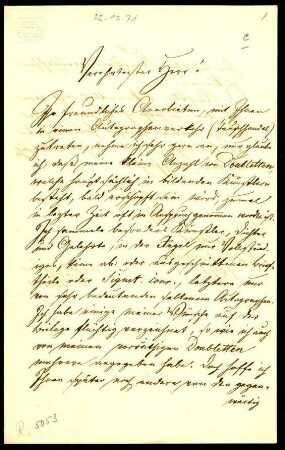 22.12.71
1
c
Verehrtester Herr!
Ihr freundliches Anerbieten, mit Ihnen
in einen Autographenverkehr (Tauschhandel)
zu treten, nehme ich sehr gern an, nur glaube
ich, daß meine kleine Anzahl von Doubletten,
welche hauptsächlich in bildenden Künstlern
besteht, bald erschöpft sein wird, zumal
in letzter Zeit oft in Anspruch genommen worden ist.
Ich sammle besonders Künstler, Dichter
und Gelehrte, in der Regel nur
keine ab- oder ausgeschnittenen Brief-
theile oder Signat. letztere nur
von sehr bedeutenden seltenen Autographen.
Ich habe einige meiner Wünsche auf der
Beilage flüchtig verzeichnet, so wie ich auch
von meinen vorräthigen Doubletten
mehrere angegeben habe. Doch hoffe ich
Ihnen später noch andere von den gegen-
wärtig
R. 5053